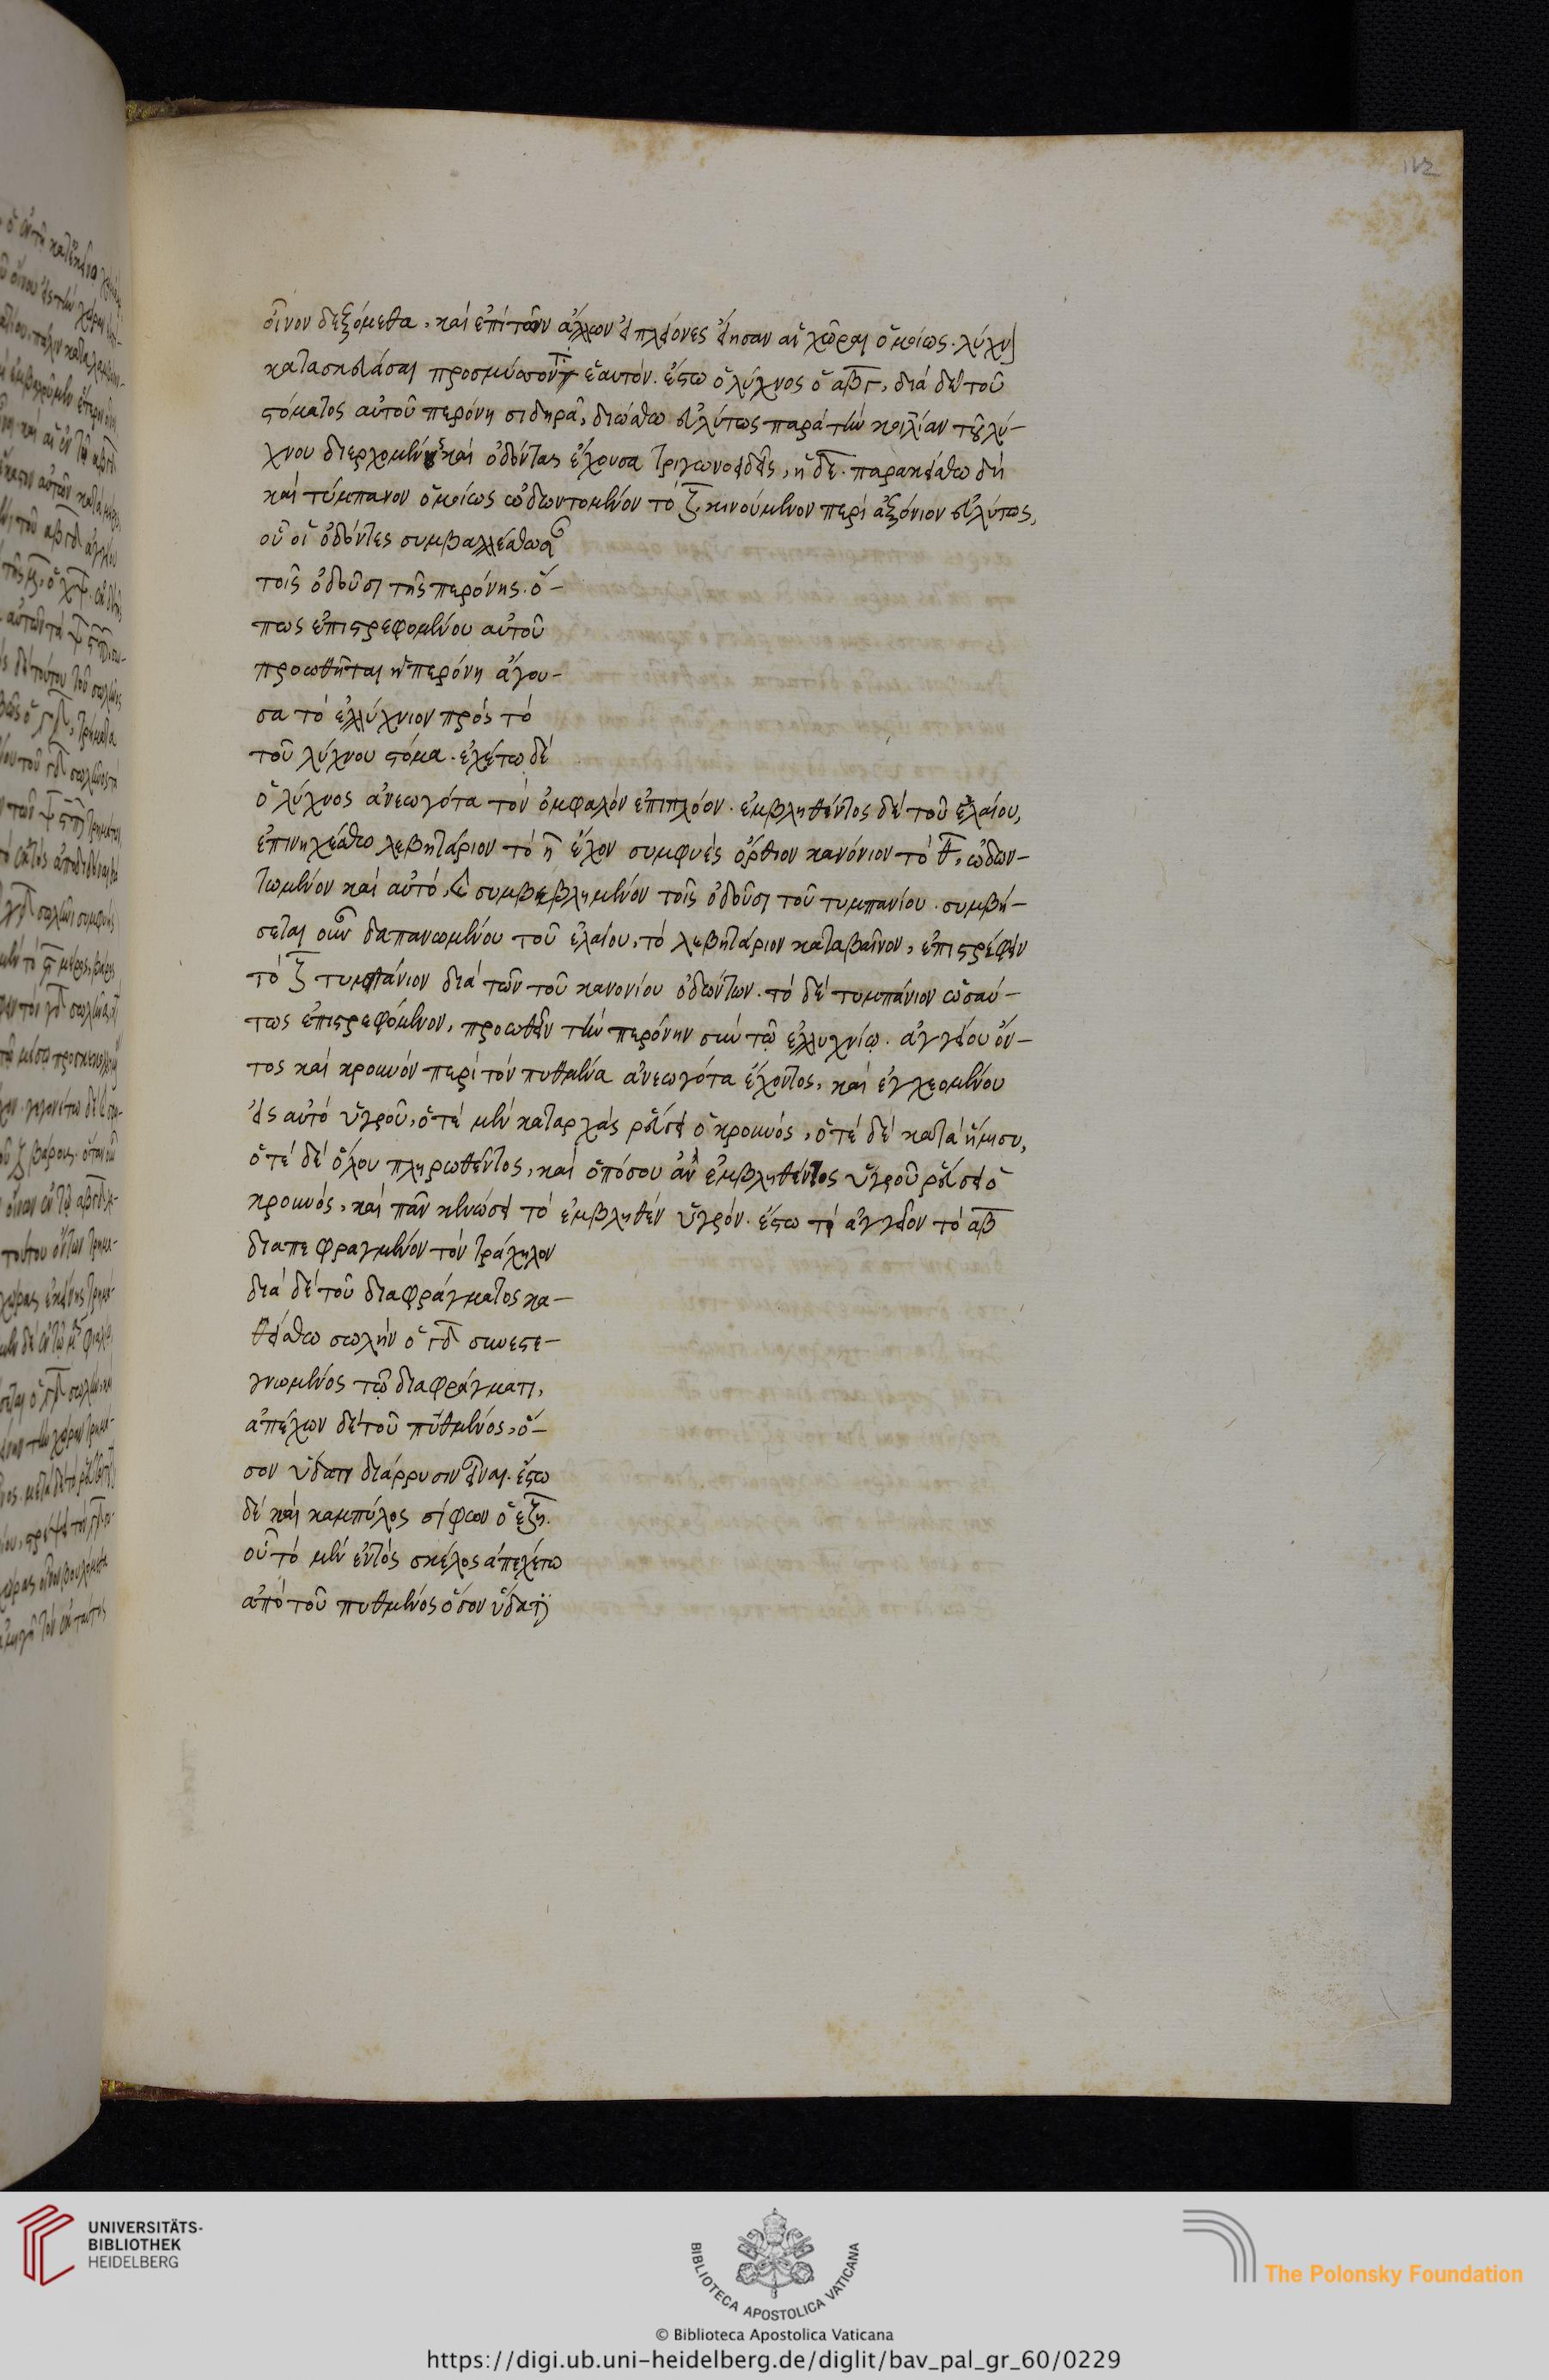 112
οἶνον δεξόμεθα, καὶ ἐπὶ τῶν ἄλλων εἰ πλείονες εἴησαν αἱ χῶραι ὁμοίως. λύχν
κατασκευάσαι προσμύσοντ ἑαυτόν. ἔστω ὁ λύχνος ὁ αβγ, διὰ δὲ τοῦ
στόματος αὐτοῦ περόνη σιδηρᾶ, διώσθω εὐλύτως παρὰ τὴν κοιλίαν τοῦ λύ-
χνου διερχομένη καὶ ὀδόντας ἔχουσα τριγωνοειδεῖς, ἡ δε. παρακείσθω δὴ
καὶ τύμπανον ὁμοίως ὠδωντομένον τὸ ζ, κινούμενον περὶ ἀξόνιον εὐλύτως,
οὗ οἱ ὀδόντες συμβαλλέσθωσαν
τοῖς ὀδοῦσι τῆς περόνης. ὅ-
πως ἐπιστρεφομένου αὐτοῦ
προωθῆται ἡ περόνη ἄγου-
σα τὸ ἐλλύχνιον πρὸς τὸ
τοῦ λύχνου στόμα. ἐχέτω δὲ
ὁ λύχνος ἀνεωγότα τὸν ὀμφαλὸν ἐπιπλόον. ἐμβληθέντος δὲ τοῦ ἐλαίου,
ἐπινηχέσθω λεβητάριον τὸ η ἔχον συμφυὲς ὄρθιον κανόνιον τὸ θ, ὠδων-
τωμένον καὶ αὐτό, καὶ συμβεβλημένον τοῖς ὀδοῦσι τοῦ τυμπανίου. συμβή-
σεται οὖν δαπανωμένου τοῦ ἐλαίου, τὸ λεβητάριον καταβαῖνον, ἐπιστρέφειν
τὸ ζ τυμπάνιον διὰ τῶν τοῦ κανονίου ὀδώντων. τὸ δὲ τυμπάνιον ὡσαύ-
τως ἐπιστρεφόμενον, προωθεῖν τὴν περόνην σὺν τῷ ἐλλυχνίῳ. ἀγγείου ὄν-
τος καὶ κρουνὸν περὶ τὸν πυθμένα ἀνεωγότα ἔχοντος, καὶ ἐγχεομένου
εἰς αὐτὸ ὑγροῦ, ὁτὲ μὲν καταρχὰς ῥεύσει ὁ κρουνός, ὁτὲ δὲ κατὰ ἥμισυ,
ὁτὲ δὲ ὅλου πληρωθέντος, καὶ ὁπόσου ἂν ἐμβληθέντος ὑγροῦ ῥεύσει ὁ
κρουνός, καὶ πᾶν κενώσει τὸ ἐμβληθὲν ὑγρόν. ἔστω τὸ ἀγγεῖον τὸ αβ
διαπεφραγμένον τὸν τράχηλον
διὰ δὲ τοῦ διαφράγματος κα-
θείσθω σωλὴν ὁ γδ συνεστε-
γνωμένος τῷ διαφράγματι,
ἀπέχων δὲ τοῦ πυθμένος, ὅ-
σον ὕδατι διάρρυσιν εἶναι. ἔστω
δὲ καὶ καμπύλος σίφων ὁ εζη.
οὗ τὸ μὲν ἐντὸς σκέλος ἀπεχέτω
ἀπὸ τοῦ πυθμένος ὅσον ὕδατι
UNIVERSITÄTS-
BIBLIOTHEK
HEIDELBERG
BIBLIOTECA APOSTOLICA VATICANA
The Polonsky Foundation
© Biblioteca Apostolica Vaticana
https://digi.ub.uni-heidelberg.de/diglit/bav_pal_gr_60/0229